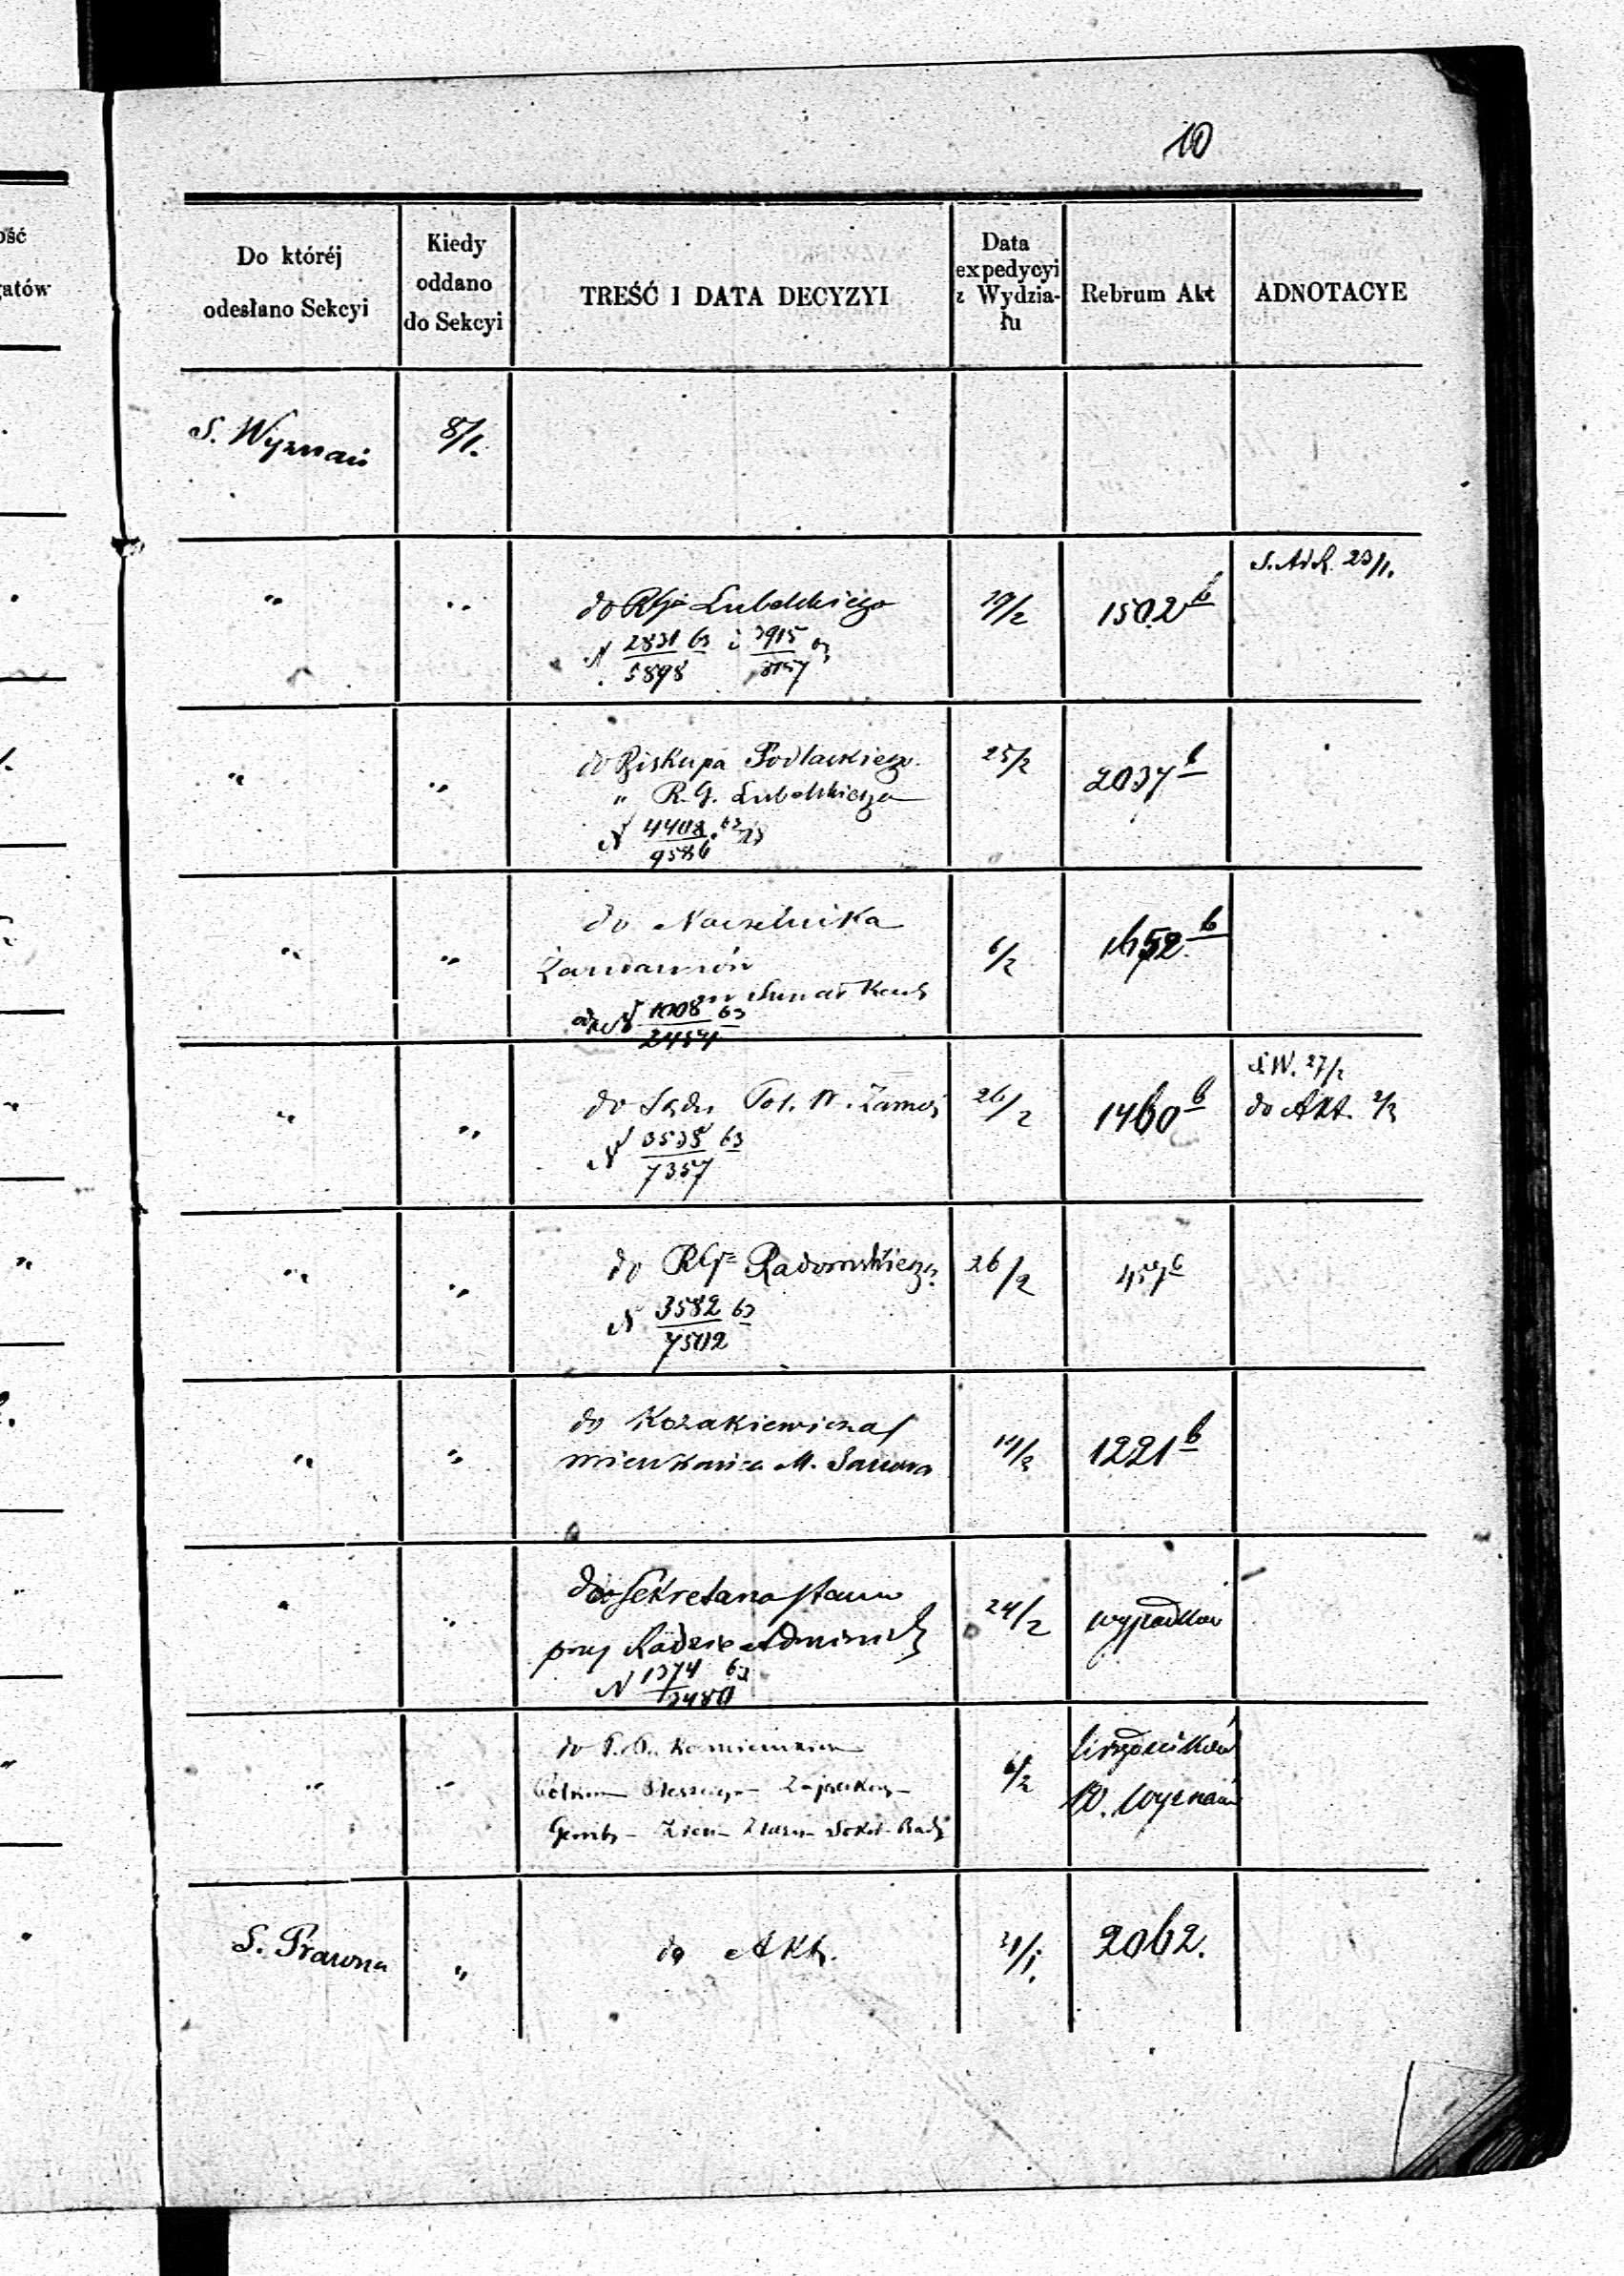 10
ość
gatów
Do któréj
odesłano Sekcyi
Kiedy
oddano
do Sekcyi
TREŚĆ I DATA DECYZYI
Data
expedycyi
z Wydzia-
łu
Rebrum Akt
ADNOTACYE
S. Wyznań
8/1.
"
"
do RGo Lubelskiego
N 2831/5898 63 i 3915
19/2
1502 b
23/1.
"
"
do Biskupa Podlaskiego
" R. G. Lubelskiego
N 4408/9586 63
25/2
2037 b
"
"
do Naczelnika
Żandarmów
N 1008/2454 63
6/2
1652. b
"
"
do Sądu Pol. W. Zamoj
N 3538/7357 63
26/2
1460 b
S W. 27/2
do Akt. 2/3
"
"
do RGo Radomskiego
N 3582/7502 63
26/2
457 b
"
"
do Kozakiewicza
mieszkańca M.
1221 b
"
"
do Sekretarza Stanu
przy Radzie Administ
N 1374/3480 63
24/2
wypadków
"
"
do P. P.
6/2
Urzędników
W. Wyznań
S. Prawna
"
do Akt.
31/1.
2062.